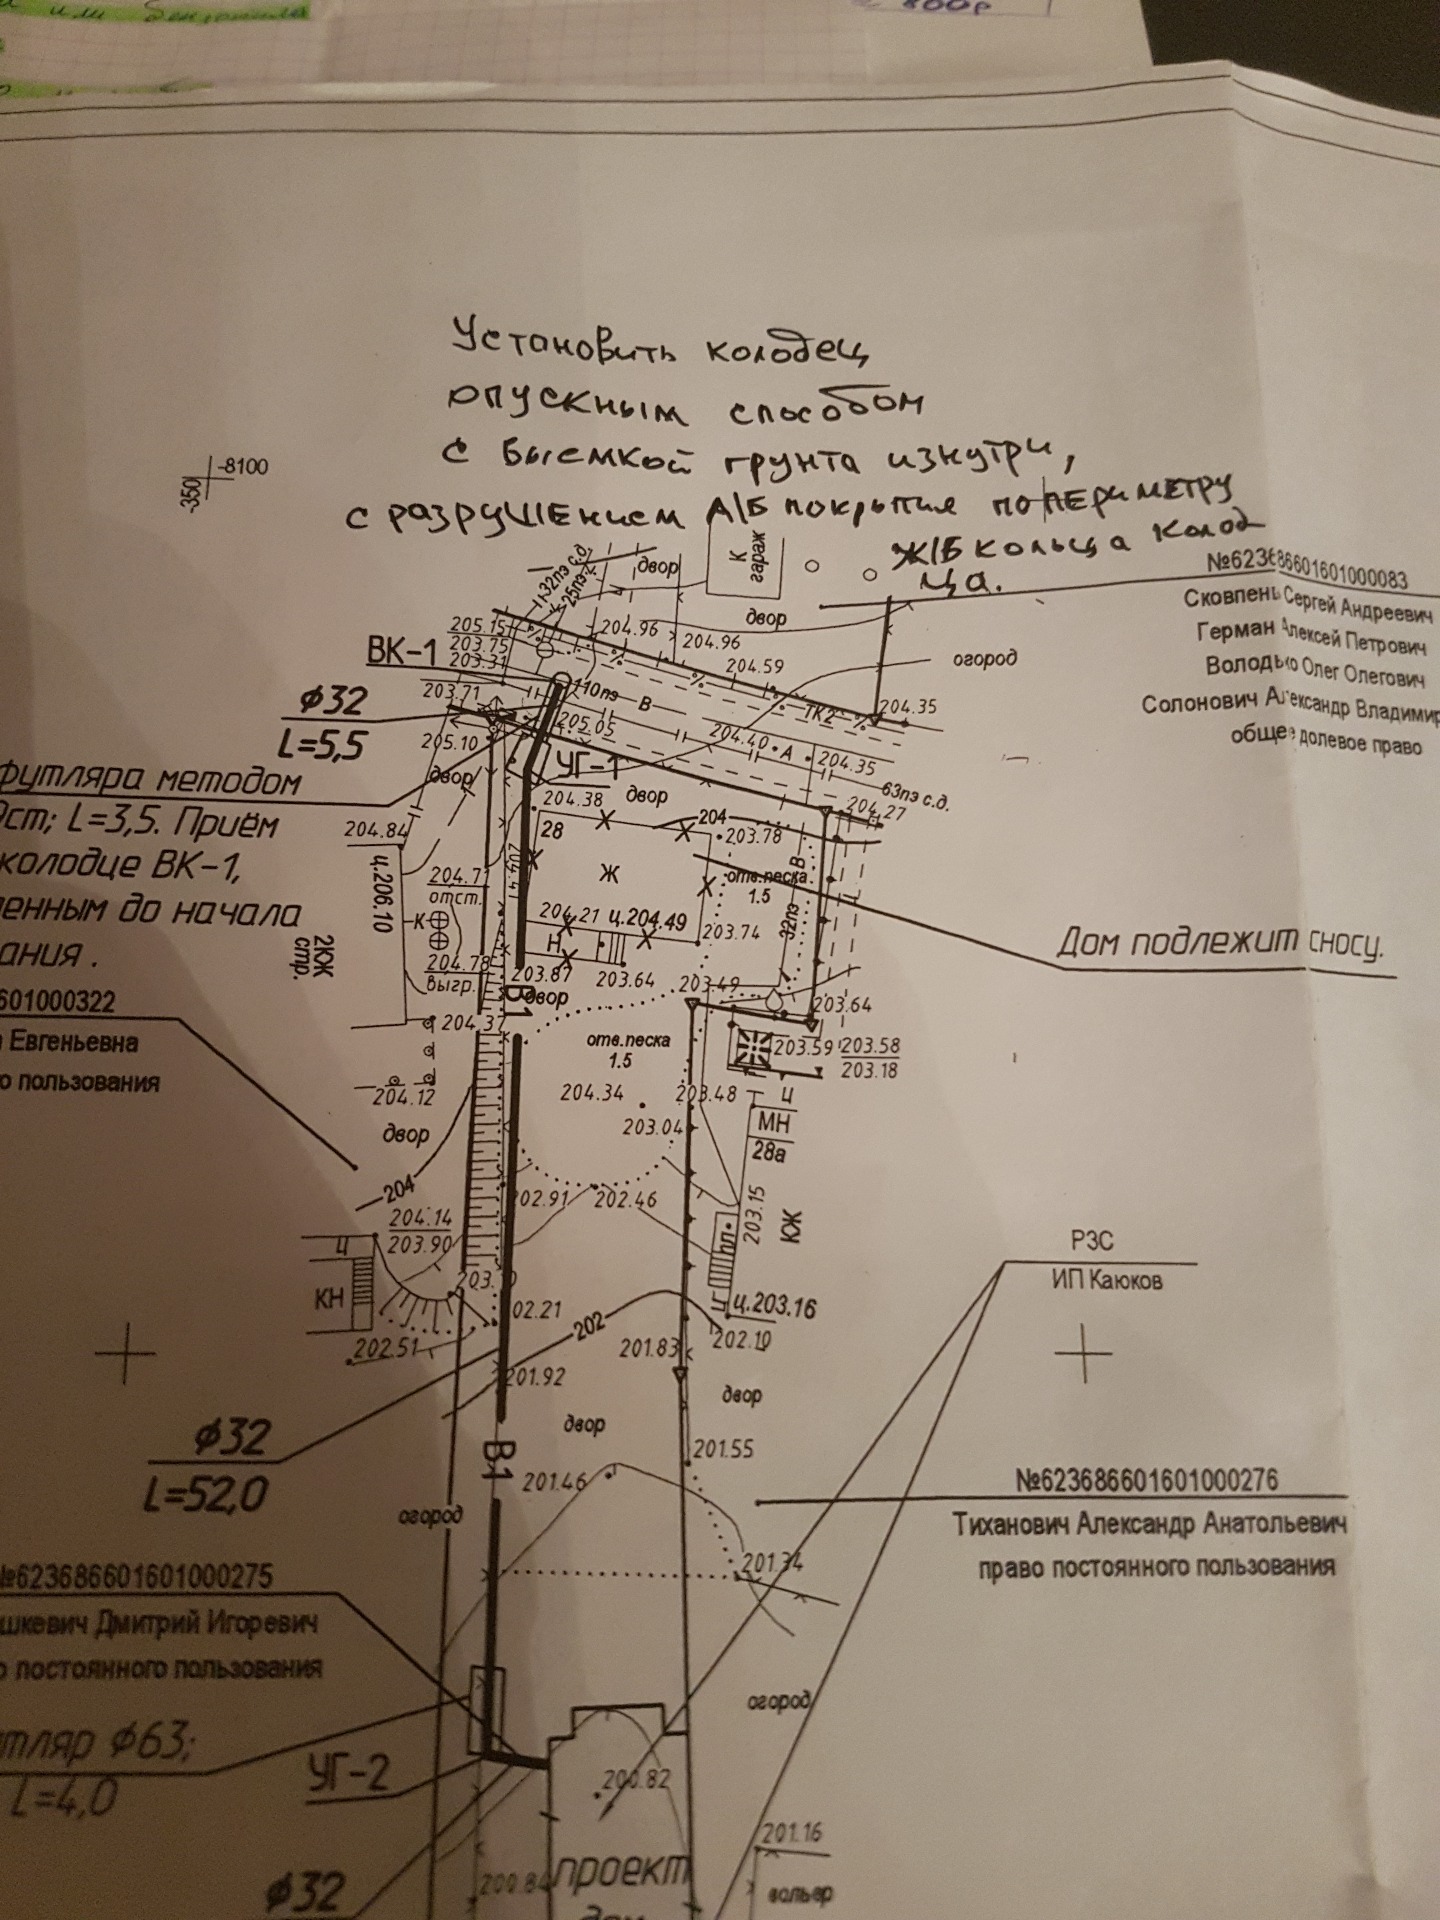 или
800р
Установить колодец
опускным способом
с выемкой грунта изнутри,
с разрушением А/Б покрытия по периметру
Ж/Б кольца колод
ца.
-8100
-350
К
гараж
двор
32пэ с.д.
25пэ
№623686601601000083
Сковпень Сергей Андреевич
Герман Алексей Петрович
Володько Олег Олегович
Солонович Александр Владимир
общее долевое право
двор
205.15
203.75
203.31
204.96
204.96
204.59
огород
ВК-1
203.71
110пэ
В
ТК2
204.35
ϕ32
L=5,5
205.05
205.10
204.40
А
204.35
63пэ с.д.
204.27
УГ-1
футляра методом
L=3,5. Приём
колодце ВК-1,
ленным до начала
ания.
двор
204.38
двор
204
203.78
28
204.84
ц.206.10
204.41
Ж
отв.песка
1.5
В
32пэ
отст.
К
204.21
ц.204.49
203.74
Н
2КЖ
стр.
204.78
выгр.
203.87
203.64
203.49
Дом подлежит сносу.
601000322
Евгеньевна
о пользования
В1
двор
203.64
204.37
отв.песка
1.5
203.59
203.58
203.18
204.12
204.34
203.48
203.04
Ц
МН
28а
двор
204
202.91
202.46
203.15
КЖ
204.14
203.90
пл.
Ц
КН
02.21
ц.203.16
202
202.51
201.83
202.10
РЗС
ИП Каюков
201.92
двор
двор
ϕ32
L=52,0
В1
201.46
201.55
огород
№623686601601000276
Тиханович Александр Анатольевич
право постоянного пользования
201.34
№623686601601000275
шкевич Дмитрий Игоревич
о постоянного пользования
огород
тляр ϕ63;
L=4,0
УГ-2
200.82
201.16
ϕ32
200.84
проект
вольер